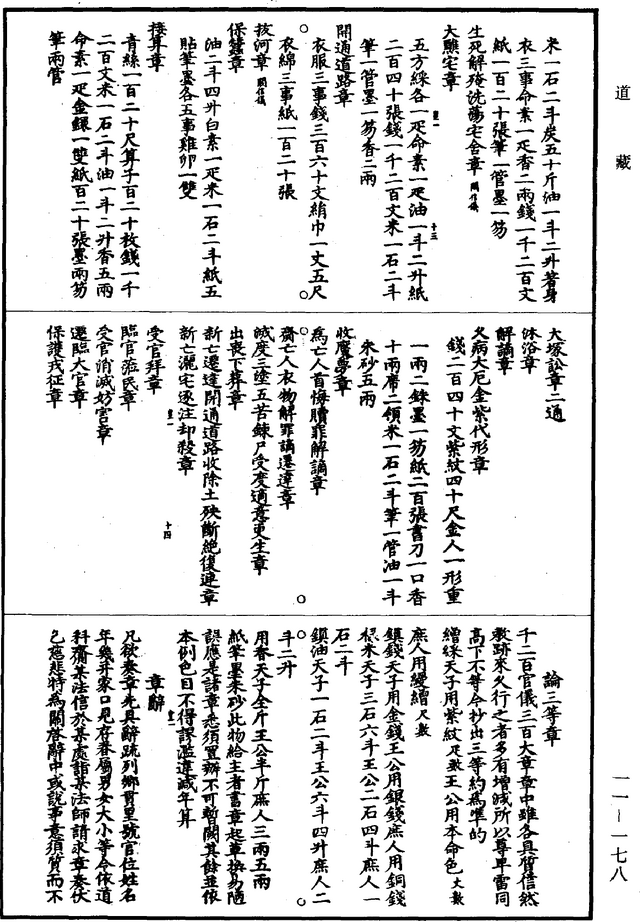 道藏
米一石二斗炭五十斤油一斗二升著身
衣三事命素一疋香二兩錢一千二百文
紙一百二十張筆一管墨一笏
生死解殗洗蕩宅舍章
大驅宅章
五方綵各一疋命素一疋油一斗二升紙
二百四十張錢一千二百文米一石二斗
筆一管墨一笏香二兩
開通道路章
衣服三事錢三百六十文絹巾一丈五尺
衣綿三事紙一百二十張
拔河章
保蠶章
油二斗四升白素一疋米一石二斗紙五
貼筆墨各五事雞卵一雙
接算章
青絲一百二十尺算子百二十枚錢一千
二百文米一石二斗油一斗二升香五兩
命素一疋金鐶一雙紙百二十張墨兩笏
筆兩管
大塚訟章二通
沐浴章
解謫章
久病大厄金紫代形章
錢二百四十文紫紋四十尺金人一形重
一兩二銖墨一笏紙二百張書刀一口香
十兩席二領米一石二斗筆一管油一斗
朱砂五兩
收魘夢章
爲亡人首悔贖罪解謫章
齋亡人衣物解罪謫遷達章
滅度三塗五苦鍊尸受度適意更生章
出喪下葬章
新亡遷達開通道路收除土殃斷絕復連章
新亡灑宅逐注却殺章
十四
受官拜章
臨官蒞民章
受官消滅妨害章
遷臨大官章
保護戎征章
論三等章
千二百官儀三百大章章中雖各具質信然
教跡來久行之者多有增減所以尊卑雷同
高下不等今抄出三等約爲準的
繒綵天子用紫紋疋數王公用本命色丈數
庶人用縵繒尺數
鎮錢天子用金錢王公用銀錢庶人用銅錢
粳米天子三石六斗王公二石四斗庶人一
石二斗
鎮油天子一石二斗王公六斗四升庶人二
斗二升
用香天子全斤王公半斤庶人三兩五兩
紙筆墨朱砂此物給主者書章起草換易陋
誤應是諸章悉須置辦不可暫闕其餘並依
本例色目不得謬濫違減年算
章辭
凡欲奏章先具辭疏列鄉貫里號官位姓名
年幾并家口見存眷屬男女大小等令依道
科齎某法信於某處詣某法師請求章奏伏
乞慈悲特爲關啓辭中或說事意須質而不
一一—一七八